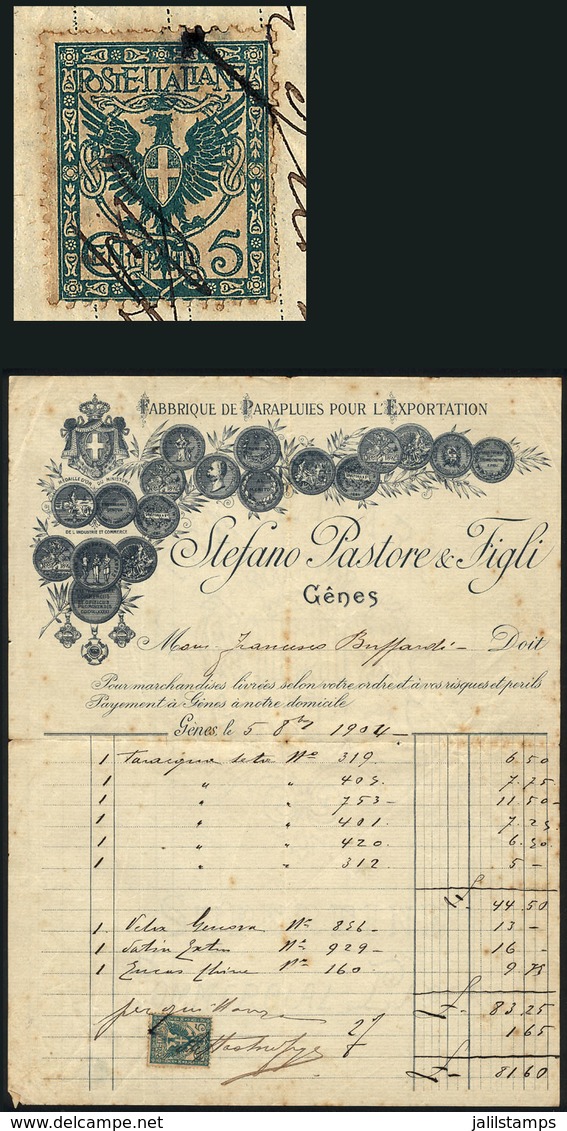 POSTE ITALIANE
5
FABBRIQUE DE PARAPLUIES POUR L'EXPORTATION
MÉDAILLE D'OR DU MINISTÈRE
DE L'INDUSTRIE ET COMMERCE
Stefano Pastore & Figli
Gênes
Doit
Pour marchandises livrées selon votre ordre et à vos risques et perils
Payement à Gênes à notre domicile
Gênes, le 5 8bre 1904
1 seta No 319 6.50
1 " " 405 7.75
1 " " 753 11.50
1 " " 401 7.25
1 " " 420 6.50
1 " " 312 5
44.50
1 Genova No 856 13
1 Satin Extra No 929 16
1 No 160 9.75
83.25
1.65
81.60
www.delcampe.net
jalilstamps